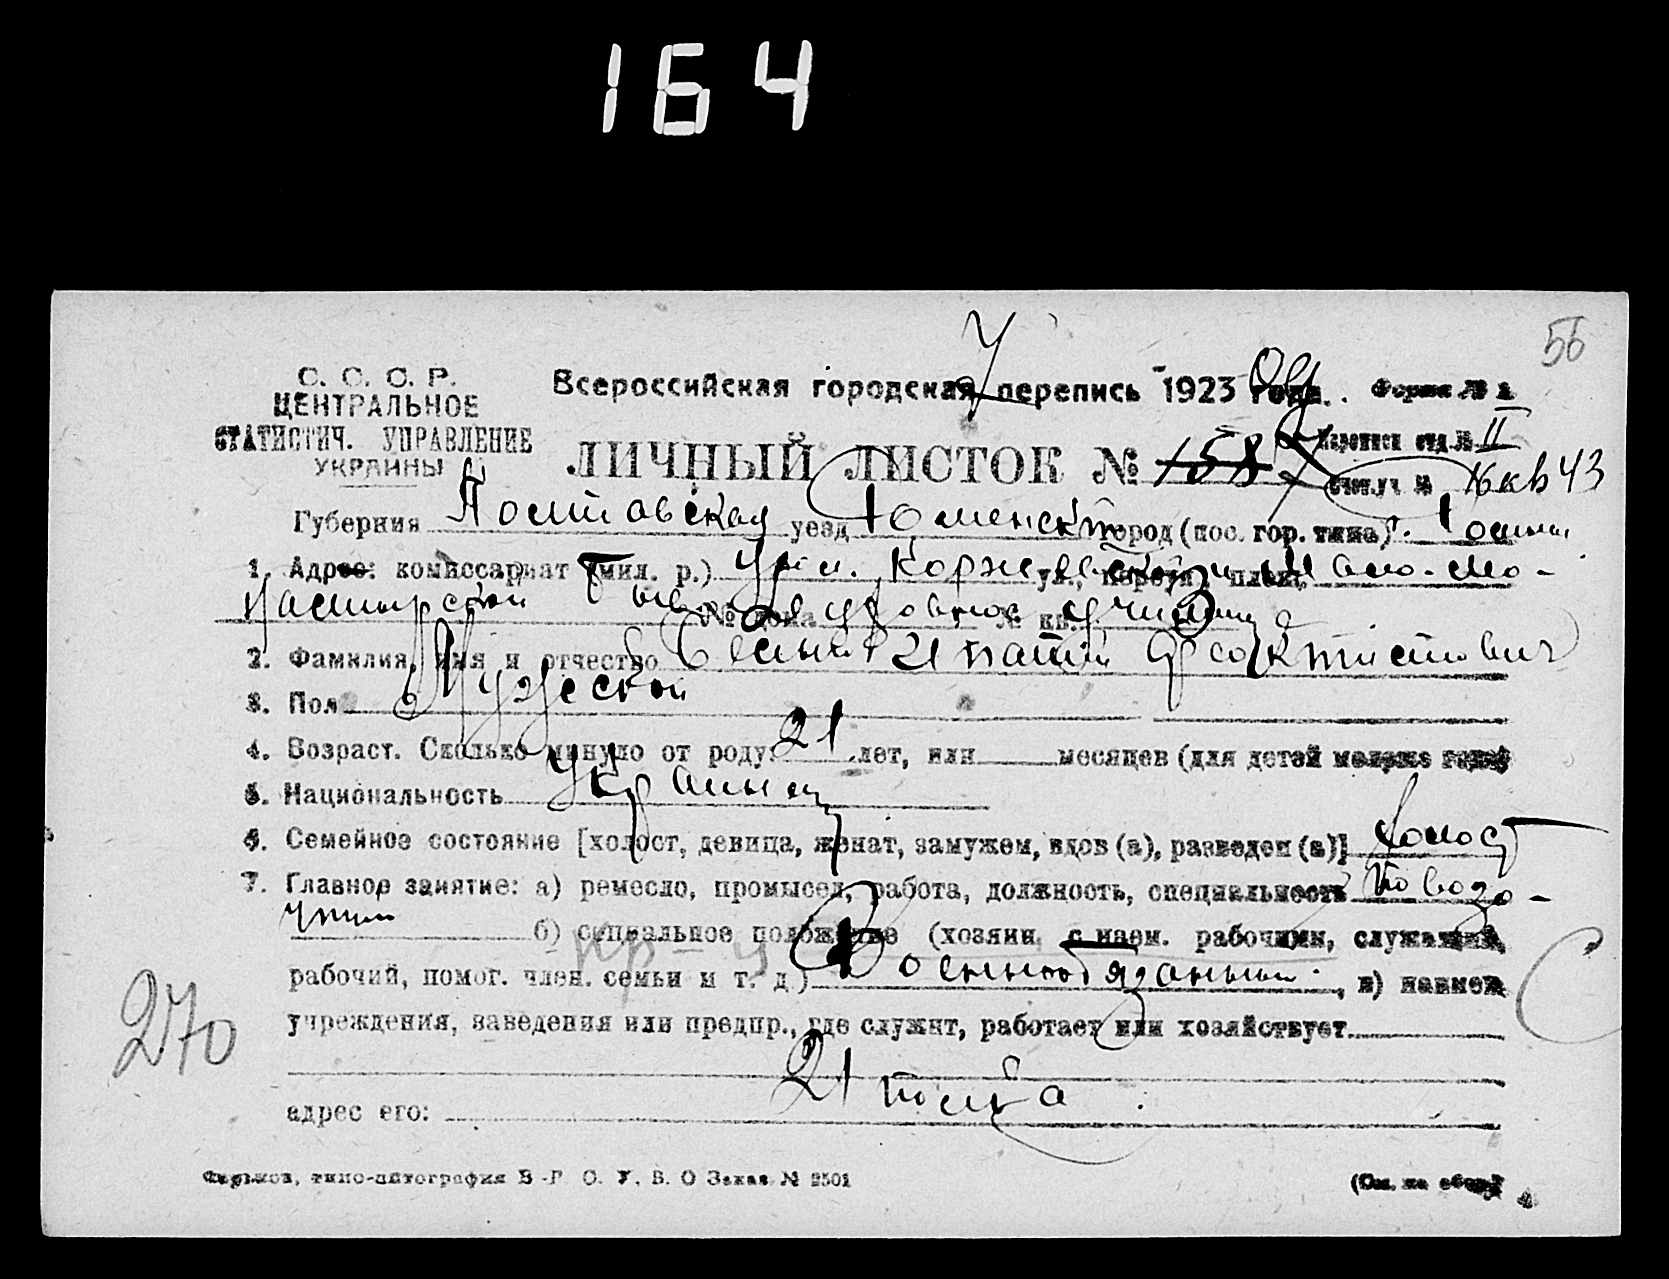 164
56
С. С. С. Р.
ЦЕНТРАЛЬНОЕ
СТАТИСТИЧ. УПРАВЛЕНИЕ
УКРАИНЫ
Всероссийская городская перепись 1923 года. Форма № 1
ЛИЧНЫЙ ЛИСТОК № 158
Переписн отд. № II
Счетн. уч №
Губерния Полтавская уезд Роменский город (пос. гор. типа) г. Ромны
1. Адрес: комиссариат (мил. р.) ул., переул., площ.
№ дома № кв.
2. Фамилия, имя и отчество Ипатий
3. Пол Мужской
4. Возраст. Сколько минуло от роду: 21 лет, или месяцев (для детей моложе года)
5. Национальность Украинец
6. Семейное состояние [холост, девица, женат, замужем, вдов (а), разведен (а)] Холост
7. Главное занятие: а) ремесло, промысел, работа, должность, специальность
б) социальное положение (хозяин с наем. рабочими, служащий,
рабочий, помог. член. семьи и т. д.) Военнообязанный, в) наимен.
учреждения, заведения или предпр., где служит, работает или хозяйствует
270
21 полка
адрес его:
Харьков, типо-литография В.-Р. О. У. В. О Заказ № 2501
(См. на обор.)